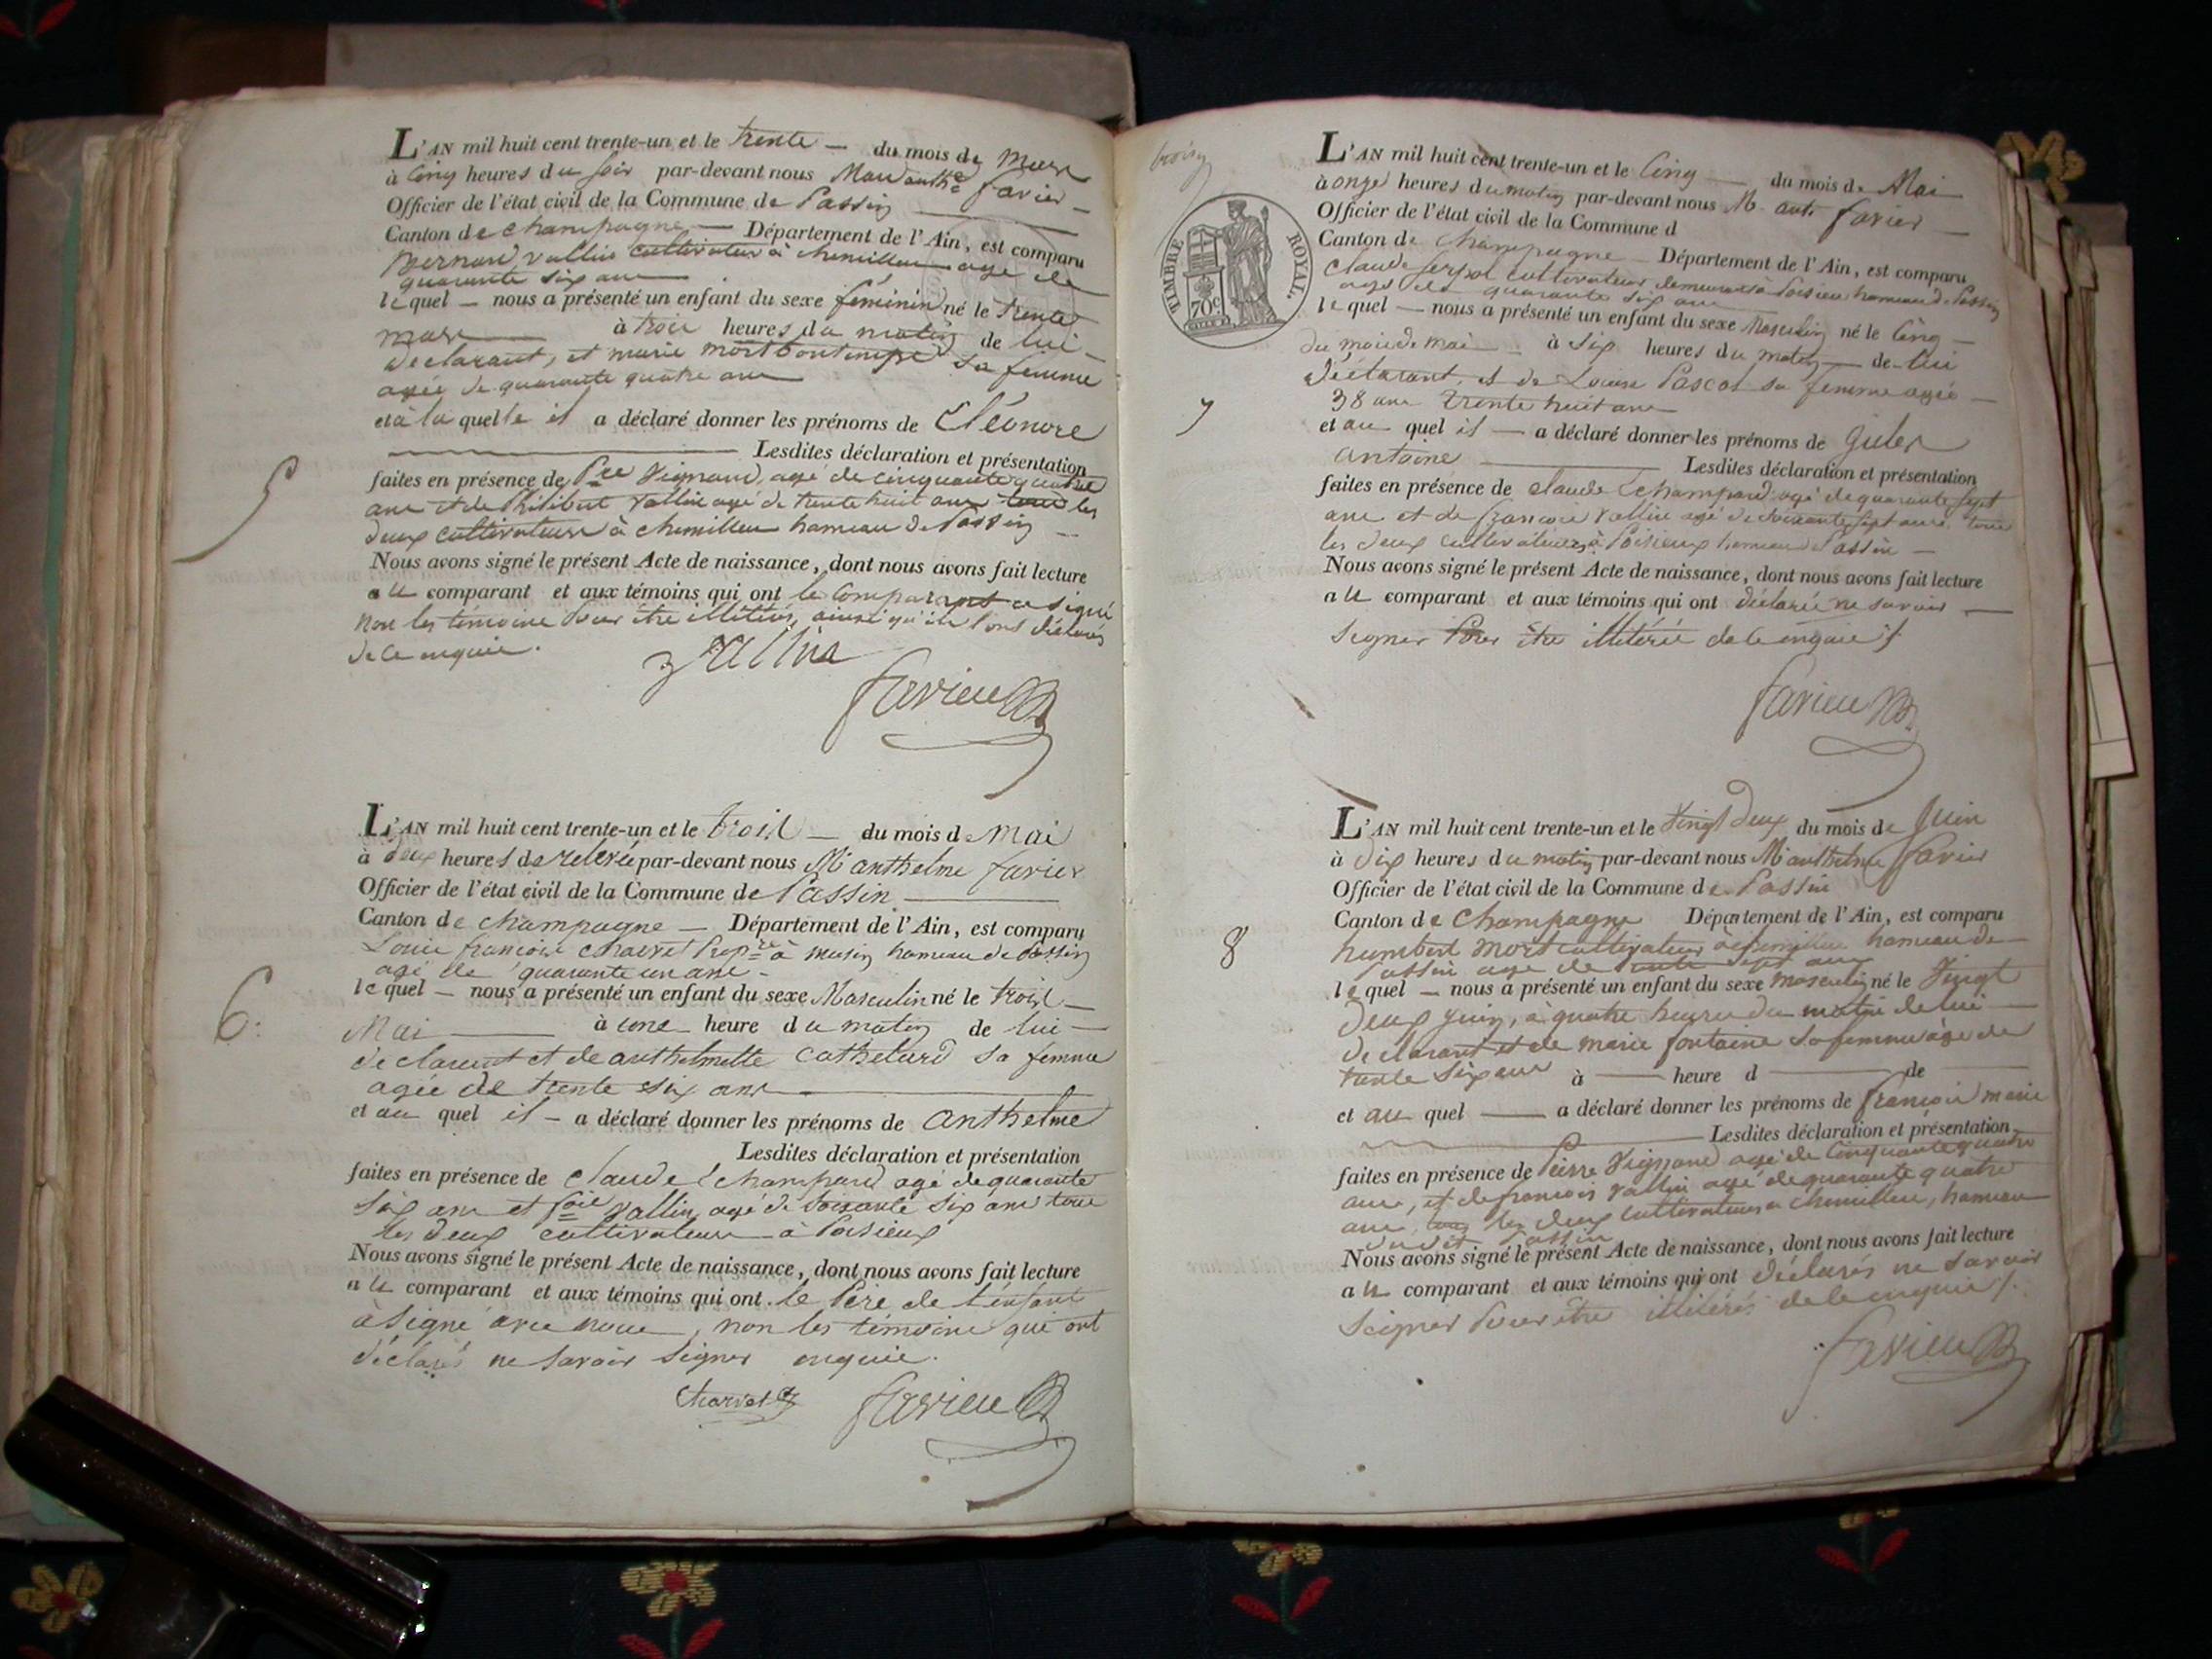 L'AN mil huit cent trente-un et le trente — du mois de mars
à Cinq heures du soir par-devant nous Favier
Officier de l'état civil de la Commune de Passin
Canton de Champagne — Département de l'Ain, est comparu
Bernard Vallin cultivateur à chemillieu agé de
quarante six ans
lequel — nous a présenté un enfant du sexe féminin né le trente
mars à trois heures du matin de lui
déclarant, et marie sa femme
agée de quarante quatre ans
et à la quelle il a déclaré donner les prénoms de Eléonore
Lesdites déclaration et présentation
faites en présence de Pre Vignand, agé de cinquante quatre
ans et de Philibert Vallin agé de trente huit ans tous les
deux cultivateurs à chemillieu hameau de Passin
Nous avons signé le présent Acte de naissance, dont nous avons fait lecture
au comparant et aux témoins qui ont le comparant a signé
non les témoins pour être illitérés, ainsi qu'ils l'ont déclarés
de ce enquis.
Vallin
Favier
5
L'AN mil huit cent trente-un et le trois — du mois de mai
à deux heures de relevée par-devant nous M anthelme favier
Officier de l'état civil de la Commune de Passin
Canton de Champagne — Département de l'Ain, est comparu
Louis françois charvet Propre à musin hameau de Passin
agé de quarante un ans
lequel — nous a présenté un enfant du sexe Masculin né le trois
Mai à une heure du matin de lui
declarent et de anthelmette cathelard sa femme
agée de trente six ans
et au quel il — a déclaré donner les prénoms de anthelme
Lesdites déclaration et présentation
faites en présence de Claude Champard agé de quarante
six ans et fois vallin, agé de soixante six ans tous
les deux cultivateurs à Poisieux
Nous avons signé le présent Acte de naissance, dont nous avons fait lecture
au comparant et aux témoins qui ont le Père de l'enfant
à signé avec nous, non les témoins que ont
déclarés ne savoir signer enquis.
Charvet Favier
6:
TIMBRE ROYAL.
70c
L'AN mil huit cent trente-un et le Cinq — du mois de Mai
à onze heures du matin par-devant nous M. anth. favier
Officier de l'état civil de la Commune d
Canton de Champagne — Département de l'Ain, est comparu
Claude cultivateur demeurant à Poisieu hameau de Passin
agé de quarante six ans
lequel — nous a présenté un enfant du sexe Masculin né le Cinq
du mois de mai — à six heures du matin — de lui
Déclarant, et de Louise Pascal sa femme agée
38 ans trente huit ans
et au quel il — a déclaré donner les prénoms de Jules
antoine Lesdites déclaration et présentation
faites en présence de Claude Champard agé de quarante sept
ans et de françois Vallin agé de soixante sept ans tous
les deux cultivateurs à Poisieux hameau de Passin
Nous avons signé le présent Acte de naissance, dont nous avons fait lecture
au comparant et aux témoins qui ont déclarés ne savoir
Signer Pour être illitérés de ce enquis
Favier
7
L'AN mil huit cent trente-un et le Vingt deux du mois de Juin
à Dix heures du matin par-devant nous M anthelme favier
Officier de l'état civil de la Commune de Passin
Canton de Champagne Département de l'Ain, est comparu
humbert Mort cultivateur à chemillieu hameau de
Passin agé de sept ans
lequel — nous a présenté un enfant du sexe masculin né le Vingt
Deux Juin, à quatre heures du matin de lui
Declarant et de marie fontaine sa femme agée de
trente six ans à — heure d — de
et au quel — a déclaré donner les prénoms de françois marie
Lesdites déclaration et présentation
faites en présence de Pierre Vignand agé de Cinquante quatre
ans, et de françois Vallin agé de quarante quatre
ans, tous les deux cultivateurs à chemillieu, hameau
dudit Passin
Nous avons signé le présent Acte de naissance, dont nous avons fait lecture
au comparant et aux témoins qui ont déclarés ne savoir
Seigner Pour être illitérés de le enquis
Favier
8